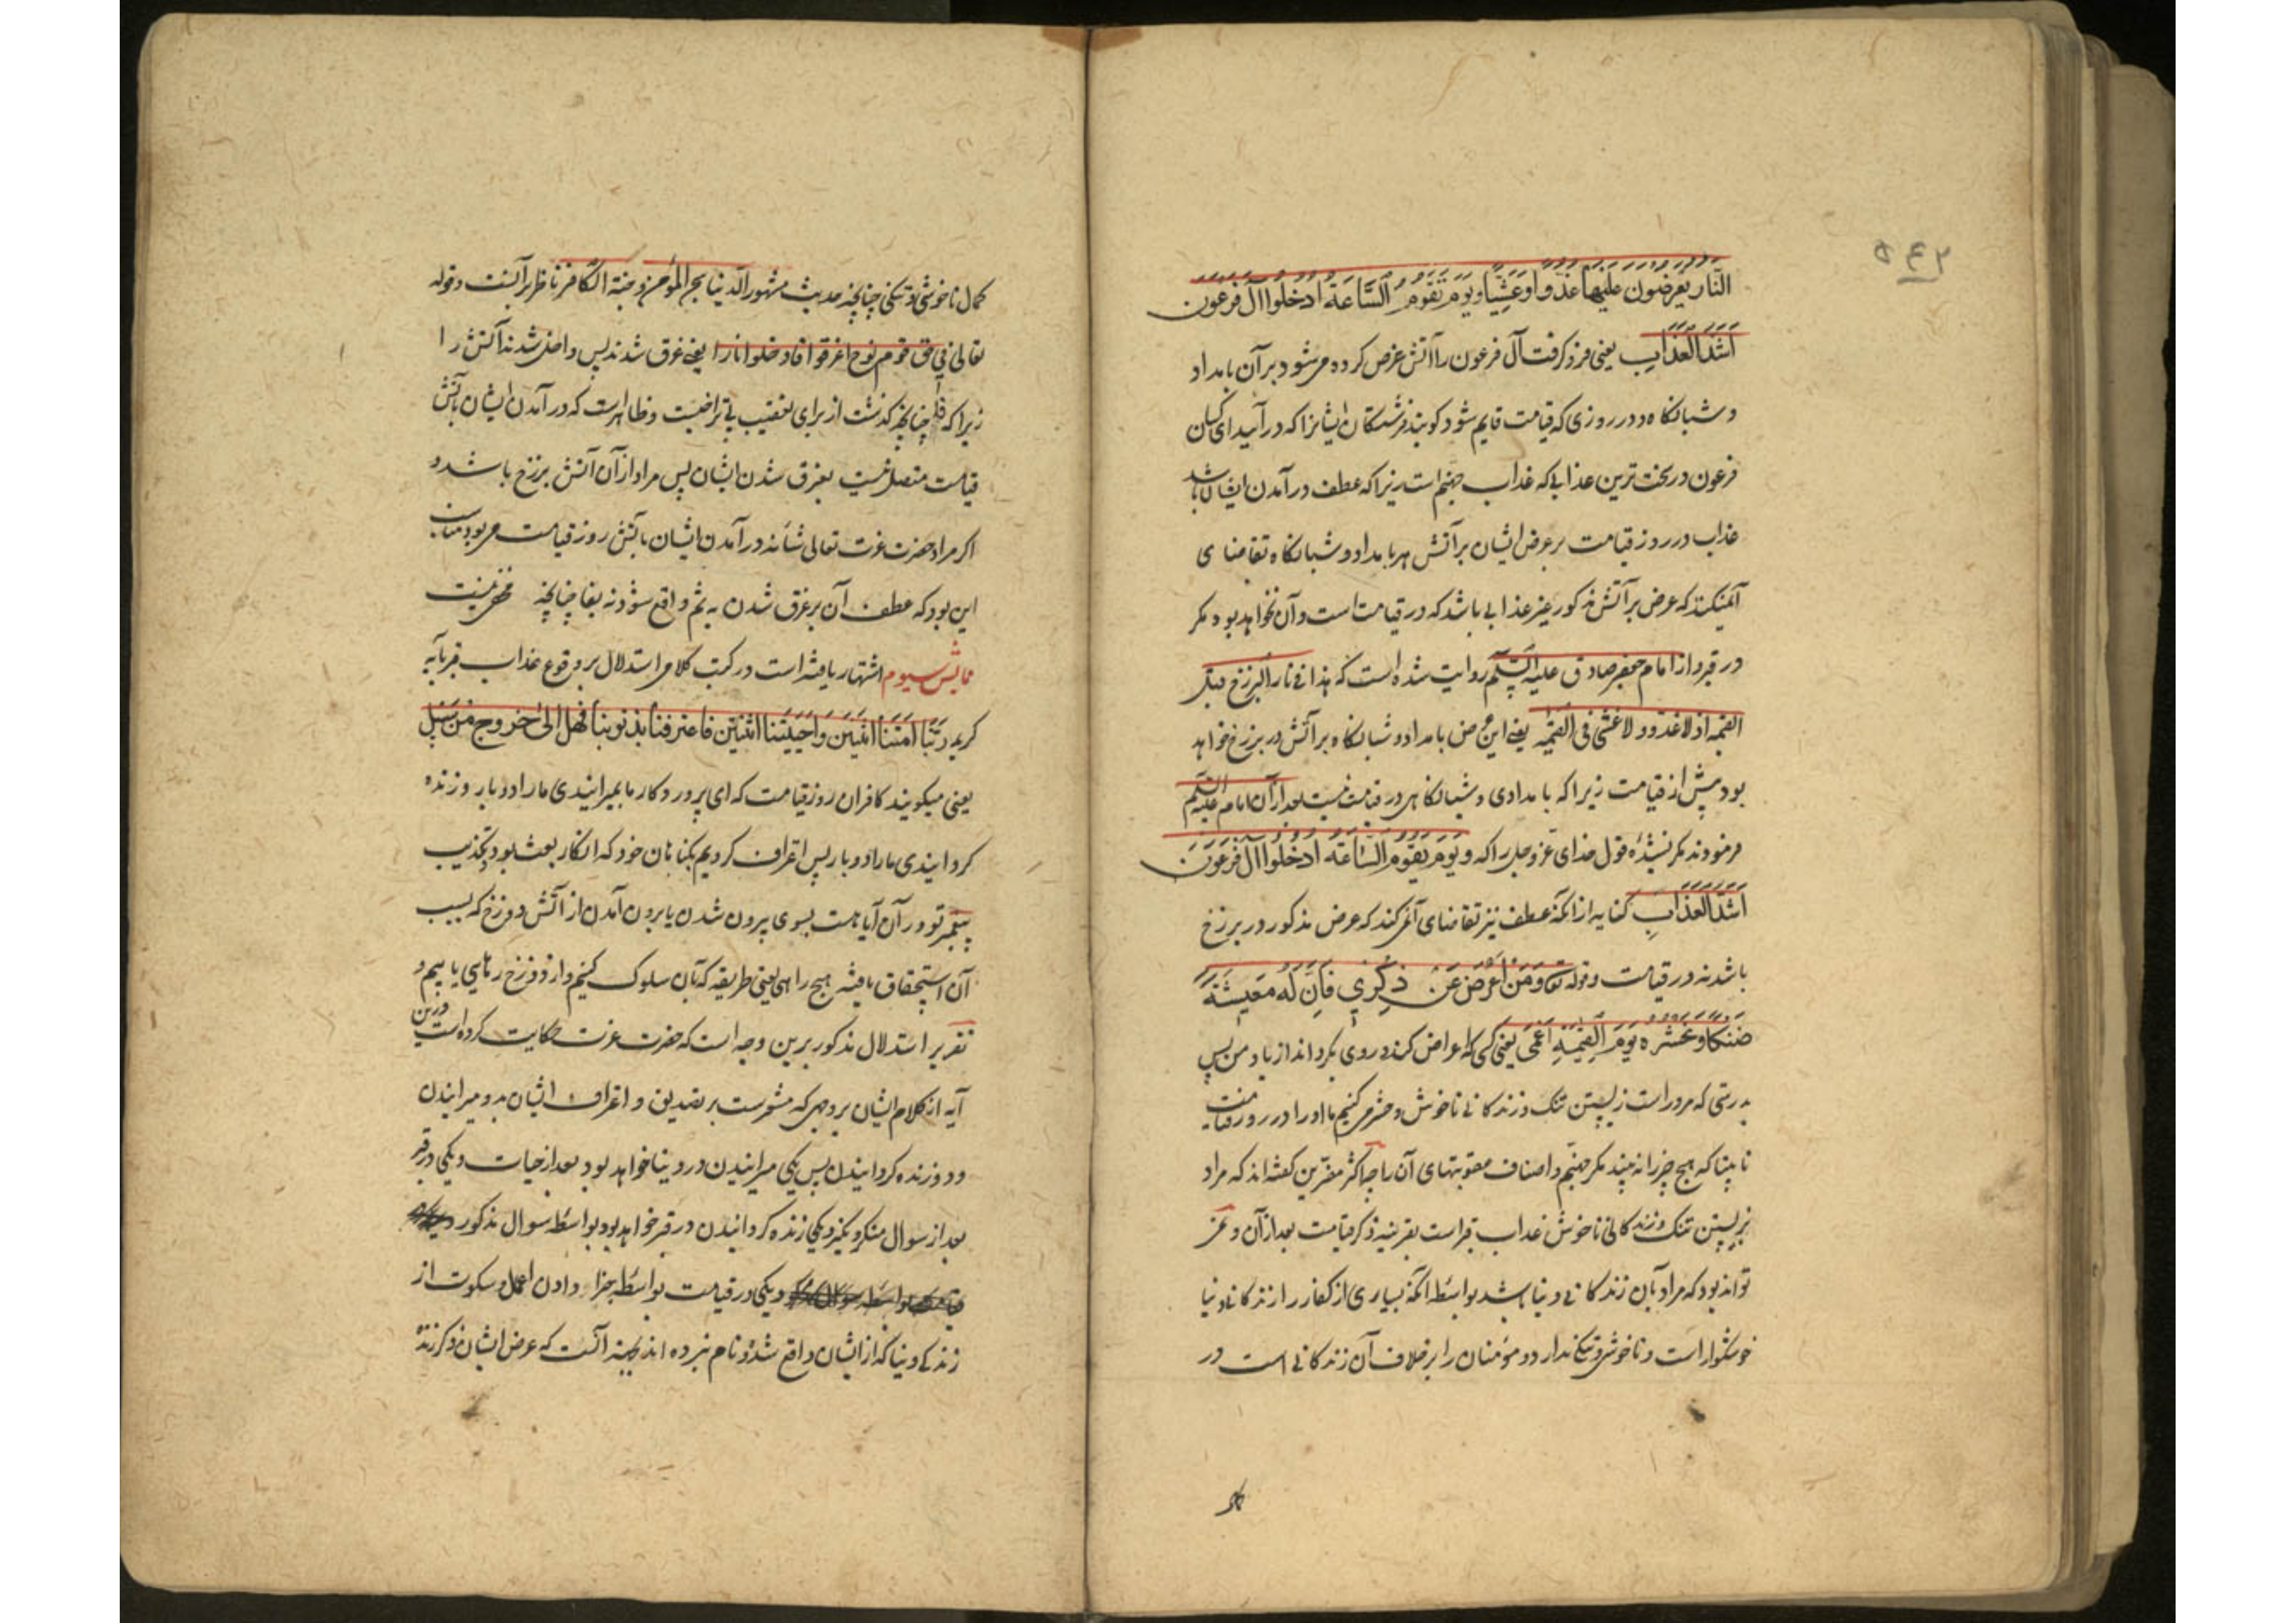 ۵۴۲
النَّار يُعرَضُون عَلَيهَا غُدُوًّا وَعَشِيًّا وَيَوْمَ تَقُومُ السَّاعَةُ اَدْخِلُوا آلَ فِرعَوْن
اَشَدَّ الْعَذَابِ یعنی فرو کرفت آل فرعون را آتش عرض کرده می شود بر آن بامداد
و شبانکاه و در روزی که قیامت قایم شود کویند فرشتکان ایشانرا که درآیید ای کسان
فرعون در سخت ترین عذابی که عذاب جهنم است زیرا که عطف درآمدن ایشان با شد
عذاب در روز قیامت بر عرض ایشان بر آتش هر بامداد و شبانکاه تقاضای
آن میکند که عرض بر آتش مذکور غیر عذابی باشد که در قیامت است و آن نخواهد بود مکر
در قبر و از امام جعفر صادق علیه السّلم روایت شده است که هذا فی نار البرزخ قبل
القیمه اذ لا غدو و لا عشی فی القیمه یعنی این عرض بامداد و شبانکاه بر آتش در برزخ خواهد
بود پیش از قیامت زیرا که بامدادی و شبانکاهی در قیامت نیست بعد از آن امام علیه السلم
فرمودند مکر نشنیدهٔ قول خدای عزّ وجل را که وَیَوْمَ تَقُومُ السَّاعَةُ اَدْخِلُوا آلَ فِرعَوْنَ
اَشَدَّ الْعَذَابِ کنایه از آنکه عطف نیز تقاضای آن می کند که عرض مذکور در برزخ
باشد نه در قیامت و قوله تع وَمَنْ اَعْرَضَ عَنْ ذِكْرِي فَاِنَّ لَهُ مَعِيشَةً
ضَنْكًا وَنَحْشُرُهُ يَوْمَ الْقِيمَةِ اَعْمَى یعنی کسی که اعراض کند و روی بکرداند از یاد من پس
بدرستی که مرو راست زیستن تنک و زندکانی ناخوش و حشر می کنیم ما او را در روز قیامت
نابینا که هیچ چیز را نه بیند مکر جهنم و اصناف عقوبتهای آن را چه اکثر مفسّرین کفته اند که مراد
بزیستن تنک و زندکانی ناخوش عذاب قبر است بقرینه ذکر قیامت بعد از آن و نمی
تواند بود که مراد بآن زندکانی دنیا باشد بواسطه آنکه بسیاری از کفار را زندکانی دنیا
خوشکوار است و ناخوشی و تنکی ندارد و مؤمنان را بر خلاف آن زندکانی است در
کمال ناخوشی و تنکی چنانچه حدیث مشهور الدّنیا سجن المؤمن و جنة الکافر ناظر بر آنست و قوله
تعالی فی حق قوم نوح اغرقوا فادخلوا نارا یعنی غرق شدند پس داخل شدند آتش را
زیرا که فا چنانچه کذشت از برای تعقیب بی تراخیست و ظاهر است که درآمدن ایشان بآتش
قیامت متصل نیست بغرق شدن ایشان پس مراد از آن آتش برزخ باشد و
اکر مراد حضرت عزت تعالی شانه درآمدن ایشان بآتش روز قیامت می بود مناسب
این بود که عطف آن بر غرق شدن به ثم واقع شود نه بفا چنانچه مخفی نیست
نمایش سیوم اشتهار یافته است در کتب کلام استدلال بر وقوع عذاب قبر بآیه
کریمه رَبَّنَا اَمَتَّنَا اثْنَتَيْنِ وَاَحْيَيْتَنَا اثْنَتَيْنِ فَاعْتَرَفْنَا بِذُنُوبِنَا فَهَلْ اِلَى خُرُوجٍ مِنْ سَبِيلٍ
یعنی میکویند کافران روز قیامت که ای پروردکار ما بمیرانیدی ما را دو بار و زنده
کردانیدی ما را دو بار پس اعتراف کردیم بکناهان خود که انکار بعث بود و تکذیب
پیغمبر تو در آن آیا هست بسوی بیرون شدن یا بیرون آمدن از آتش دوزخ که بسبب
آن استحقاق یافته هیچ راهی یعنی طریقه که بآن سلوک کنیم و از دوزخ رهایی یابیم و
تقریر استدلال مذکور برین وجه است که حضرت عزت حکایت کرده است درین
آیه از کلام ایشان بر وجهی که مشعرست بر تصدیق و اعتراف ایشان بدو میرانیدن
و دو زنده کردانیدن پس یکی میرانیدن در دنیا خواهد بود بعد از حیات و یکی در قبر
بعد از سوال منکر و نکیر و یکی زنده کردانیدن در قبر خواهد بود بواسطه سوال مذکور
و یکی در قیامت بواسطه جزا دادن اعمال و سکوت از
زندکی دنیا که از ایشان واقع شده و نام نبرده اند بجهة آنست که عرض ایشان ذکر زنده